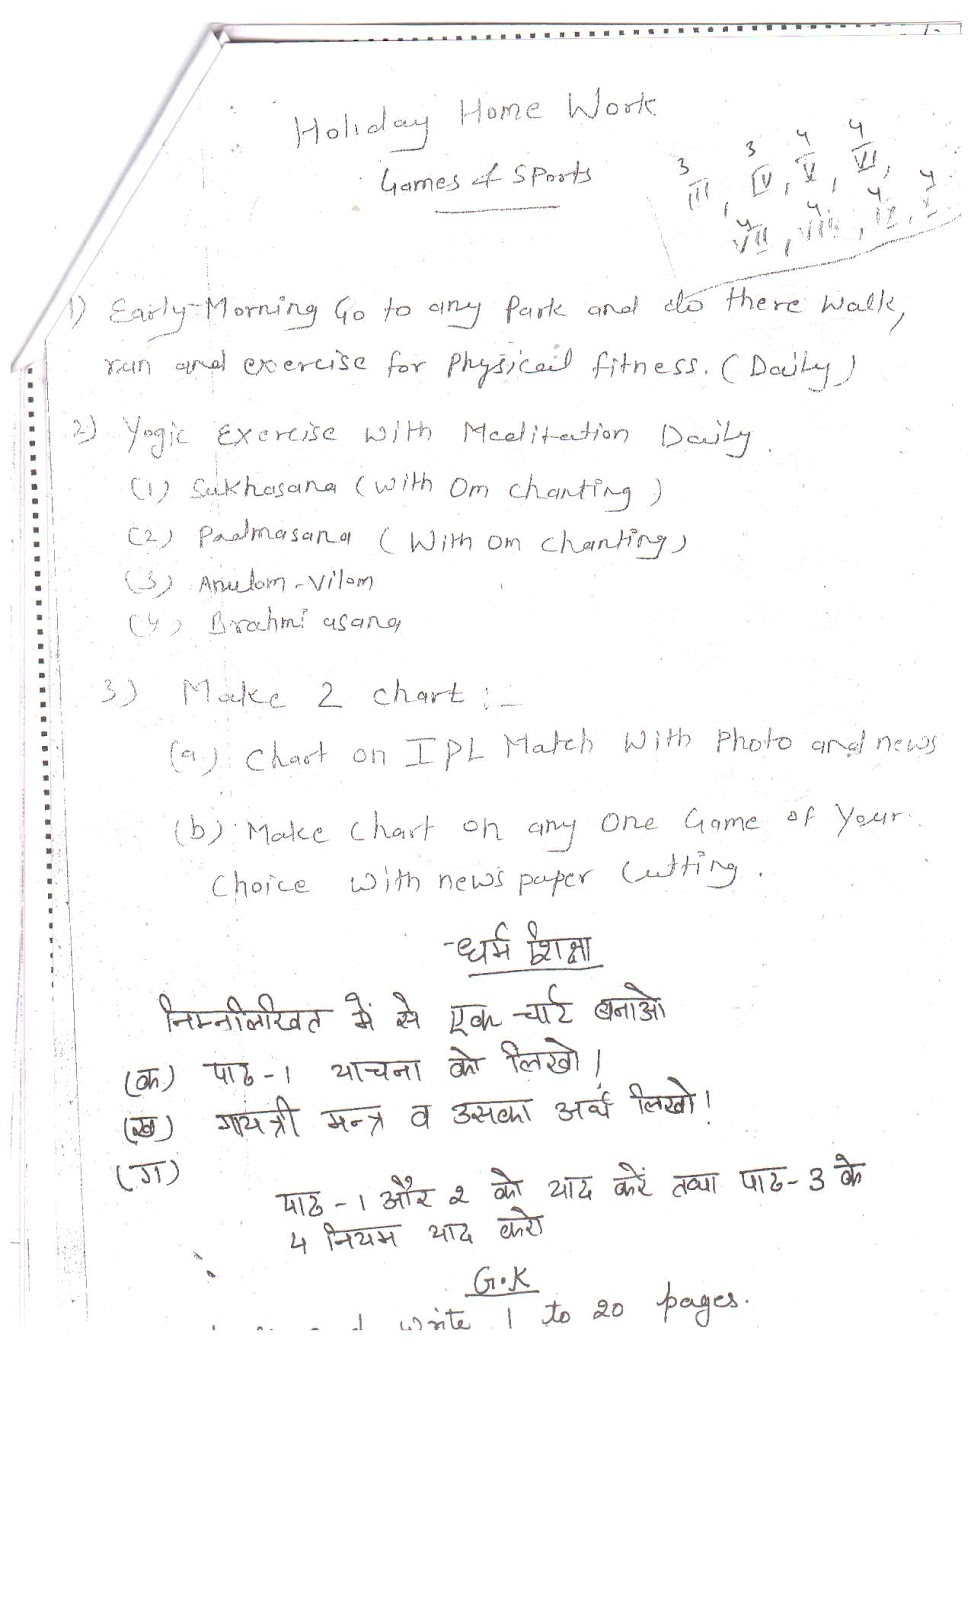 Holiday Home Work
Games & Sports
3 3 4 4
III, IV, V, VI,
4 4 4 4
VII, VIII, IX, X
1) Early-Morning Go to any Park and do there walk,
run and exercise for Physical fitness. (Daily)
2) Yogic Exercise with Meditation Daily.
(1) Sukhasana (with Om chanting)
(2) Padmasana (With om chanting)
(3) Anulom-Vilom
(4) Brahmi asana
3) Make 2 chart :-
(a) Chart on IPL Match With Photo and news
(b) Make Chart on any One Game of Your
Choice with news paper Cutting.
धर्म शिक्षा
निम्नलिखित में से एक चार्ट बनाओ
(क) पाठ-1 याचना को लिखो।
(ख) गायत्री मन्त्र व उसका अर्थ लिखो!
(ग)
पाठ-1 और 2 को याद करें तथा पाठ-3 के
4 नियम याद करो
G.K
write 1 to 20 pages.